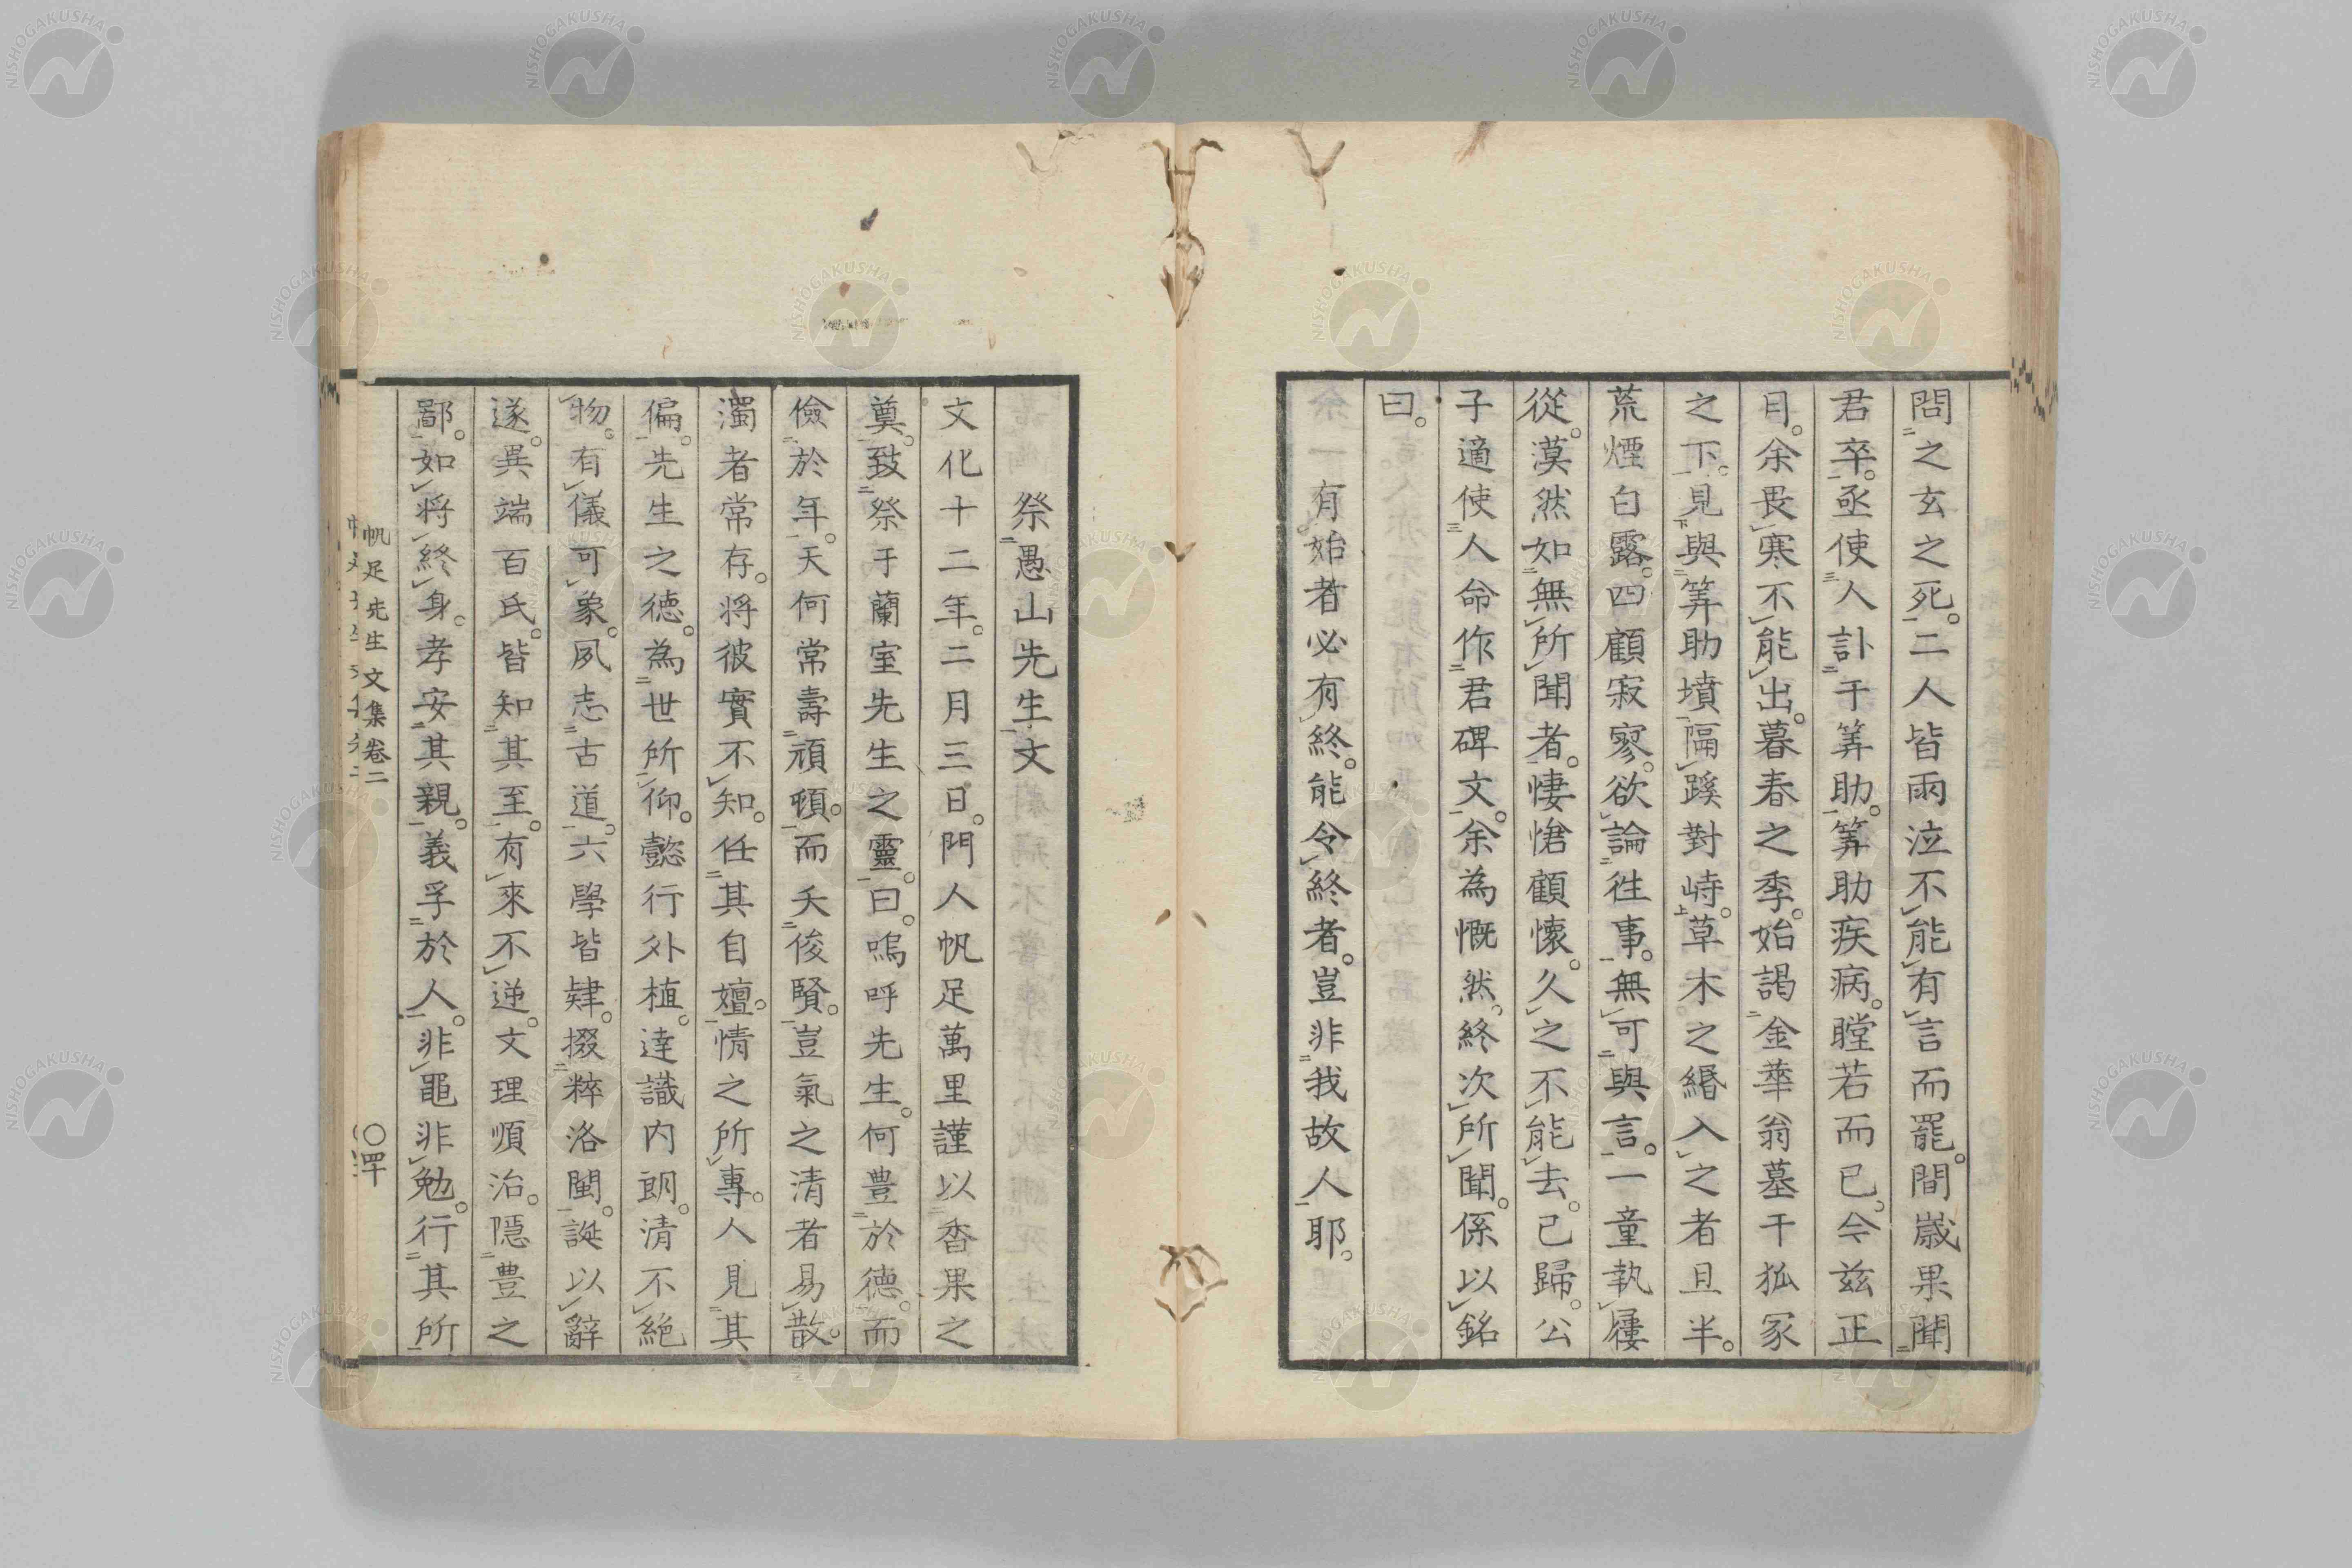 問之玄之死。二人皆兩泣不能有言而罷。間歲果聞
君卒。亟使人訃于筭助。筭助疾病。瞠若而已。今茲正
月。余畏寒不能出。暮春之季。始謁金華翁墓于狐冢
之下。見與筭助墳隔蹊對峙。草木之緡入之者且半。
荒煙白露。四顧寂寥。欲論徃事。無可與言。一童執屨
從。漠然如無所聞者。悽愴顧懷。久之不能去。已歸。公
子適使人命作君碑文。余為慨然。終次所聞。係以銘
曰。
有始者必有終。能令終者。豈非我故人耶。
祭愚山先生文
文化十二年。二月三日。門人帆足萬里謹以沓果之
奠。致祭于蘭室先生之靈。曰。嗚呼先生。何豊於德。而
儉於年。天何常壽頑頓。而夭俊賢。豈氣之清者易散。
濁者常存。将彼實不知。任其自嬗。情之所專。人見其
偏。先生之德。為世所仰。懿行外植。達識内朗。清不絶
物。有儀可象。夙志古道。六學皆肄。掇粹洛閩。誕以辭
遂。異端百氏。皆知其至。有來不逆。文理順治。隠豊之
鄙。如将終身。孝安其親。義孚於人。非黽非勉。行其所
帆足先生文集卷二
〇四十
NISHOGAKUSHA